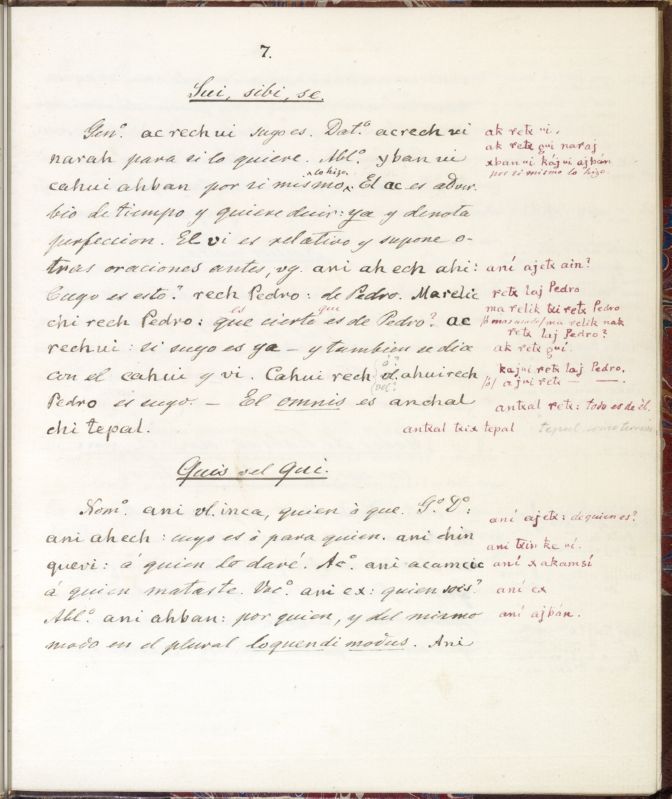 7.
Sui, sibi, se.
Genº. ac rech ui suyo es. Datº. ac rech ui
narah para si lo quiere. Ablº. yban ui
cahui ahban por si mismo lo hizo. El ac es adver-
bio de tiempo y quiere decir: ya y denota
perfeccion. El vi es relativo y supone o-
tras oraciones antes, vg. ani ahech ahi:
Cuyo es esto? rech Pedro: de Pedro. Marelic
chi rech Pedro: es que cierto que es de Pedro? ac
rechui: si suyo es ya — y tambien se dia
con el cahui y vi. Cahui rech vl. ahuirech
Pedro es suyo. — El omnis es anchal
chi tepal.
ak retx ui.
ak retx gui naraj
xban ui kájui ajbán
por si mismo lo hizo.
aní ajetx ain?
retx laj Pedro
ma relik txi retx Pedro
ma relik nak
retx laj Pedro?
ak retx gui.
kajui retx laj Pedro.
/ó/ ajui retx — —.
antxal retx: todo es de él.
antxal txix tepal
Quis vel Qui.
Nomº. ani vl. inca, quien ò que. Gº. Dº:
ani ahech: cuyo es ò para quien. ani chin
quevi: á quien lo daré. Acº. ani acamcic
á quien mataste. Vocº. ani ex: quien sois?
Ablº. ani ahban: por quien, y del mismo
modo en el plural loquendi modus. Ani
aní ajetx: de quien es?
ani txin ke ví.
aní xakamsí
aní ex
aní ajbán.